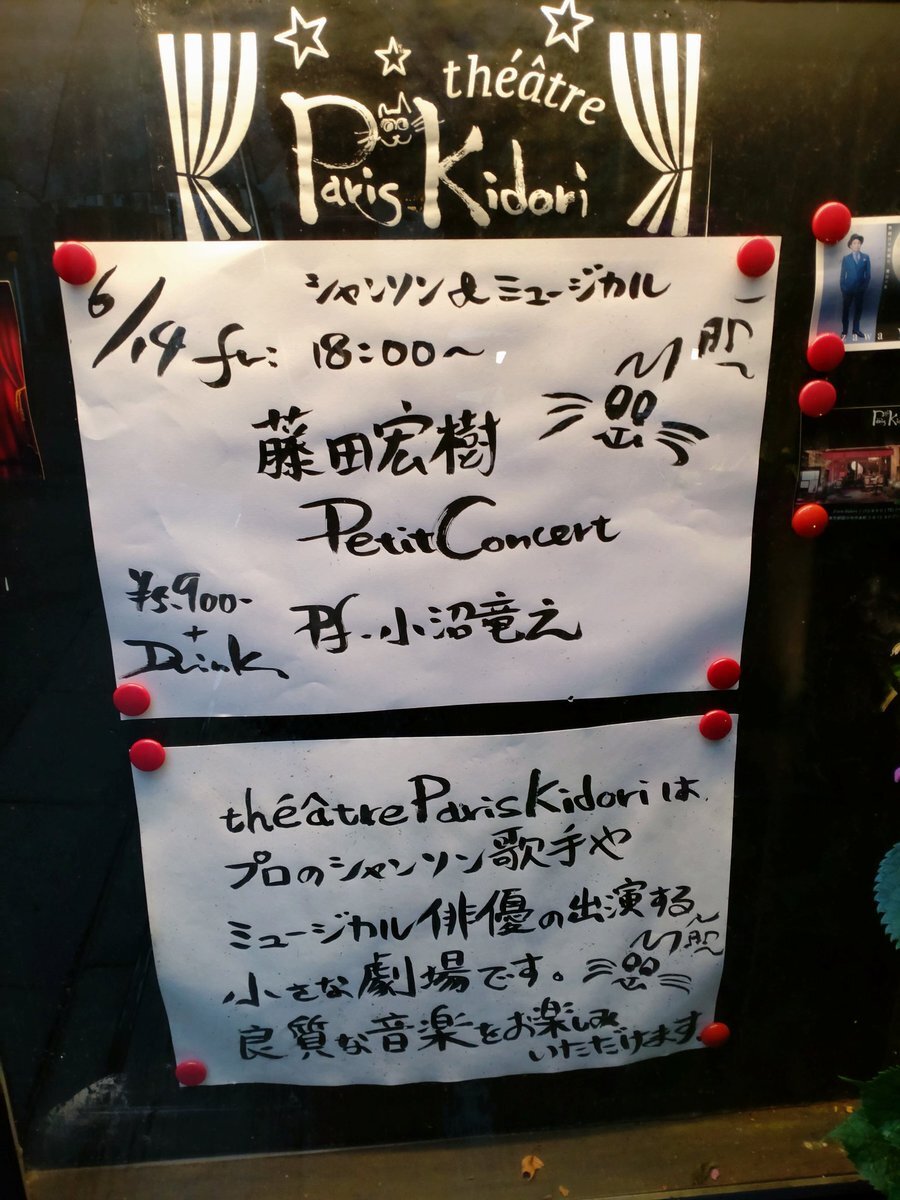 théâtre
Paris Kidori
シャンソン&ミュージカル
6/14 fr: 18:00~
藤田宏樹
Petit Concert
¥5,900-
+
Drink
Pf. 小沼竜之
théâtre Paris Kidoriは
プロのシャンソン歌手や
ミュージカル俳優の出演する
小さな劇場です。
良質な音楽をお楽しみ
いただけます。
zawa